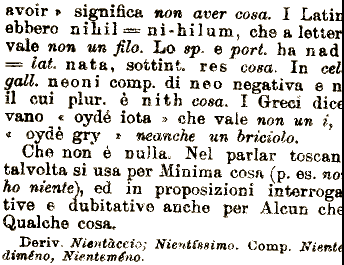 avoir » significa non aver cosa. I Latin
ebbero nihil = ni-hilum, che a letter
vale non un filo. Lo sp. e port. ha nad
= lat. nata, sottint. res cosa. In cel
gall. neoni comp. di neo negativa e n
il cui plur. è nith cosa. I Greci dice
vano « oydé iota » che vale non un i,
« oydè gry » neanche un briciolo.
Che non é nulla. Nel parlar toscan
talvolta si usa per Minima cosa (p. es. no
ho niente), ed in proposizioni interroga
tive e dubitative anche per Alcun che
Qualche cosa.
Deriv. Nientàccio; Nientíssimo. Comp. Niente
diméno, Nienteméno.